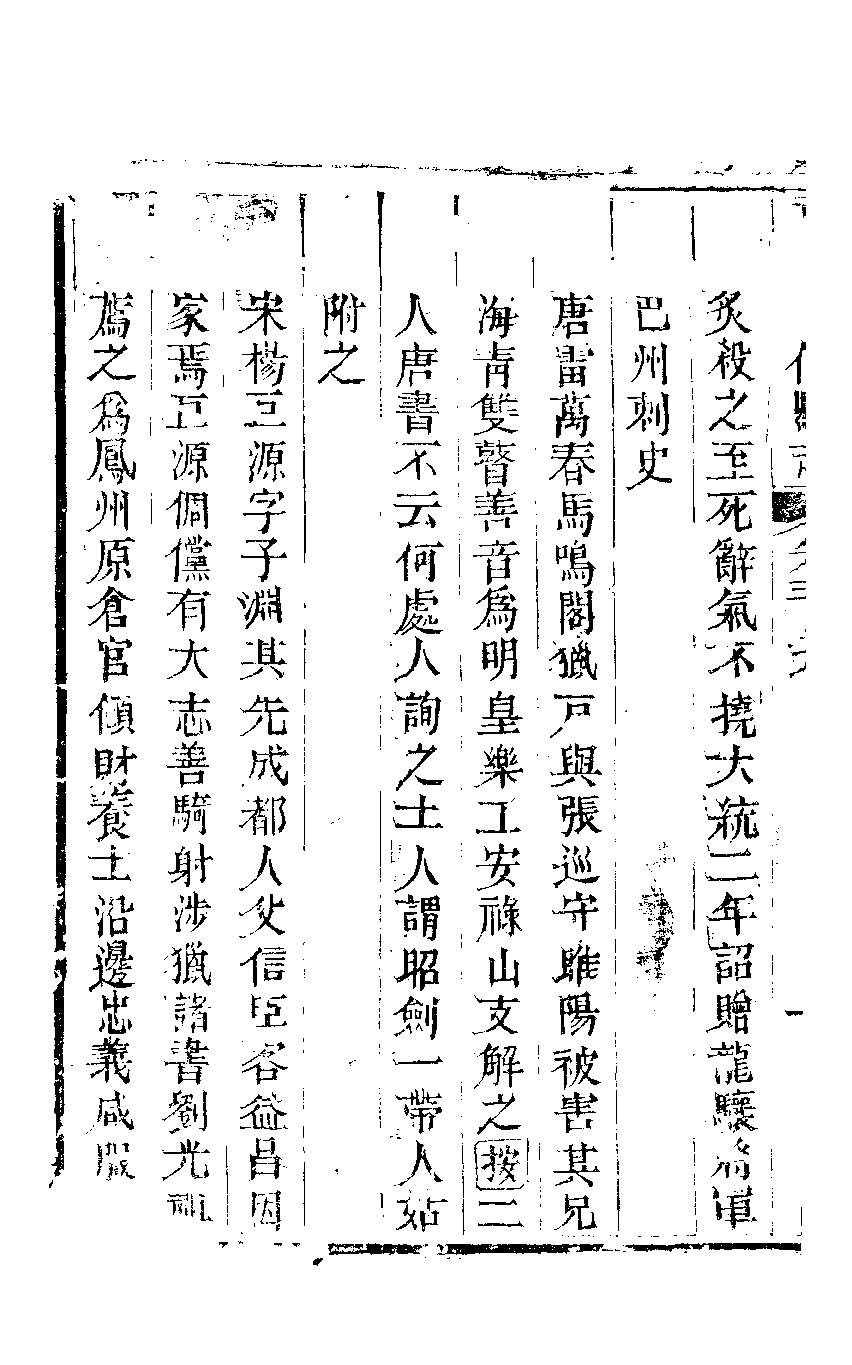 炙殺之至死辭氣不撓大統二年詔贈龍驤將軍
巴州刺史
唐雷萬春馬鳴閣獵戸與張巡守睢陽被害其兄
海青雙瞽善音爲明皇樂工安祿山支解之按二
人唐書不云何處人詢之土人謂昭劍一帶人姑
附之
宋楊巨源字子淵其先成都人父信臣客益昌因
家焉巨源倜儻有大志善騎射涉獵諸書劉光祖
薦之爲鳳州原倉官傾財養士沿邊忠義咸服